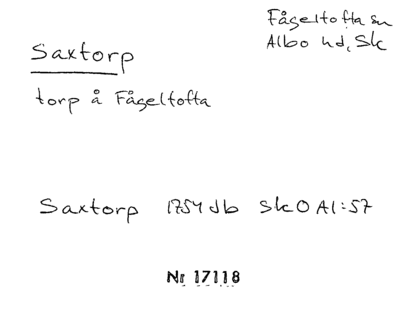 Fågeltofta sn
Albo hd, Sk
Saxtorp
torp å Fågeltofta
Saxtorp 1754 db SkO Al:57
Nr 17118